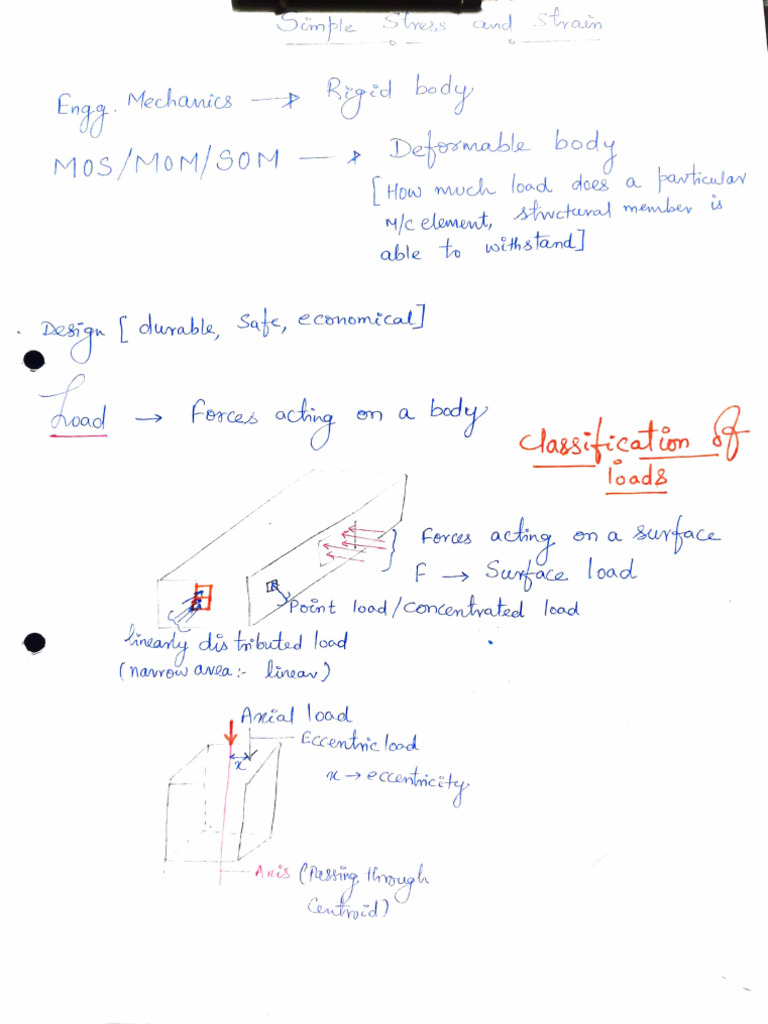 Simple Stress and Strain
Engg. Mechanics → Rigid body
MOS/MOM/SOM → Deformable body
[How much load does a particular
M/C element, structural member is
able to withstand]
Design [durable, Safe, economical]
Load → Forces acting on a body
Classification of
loads
Forces acting on a surface
F → Surface load
Point load/concentrated load
linearly distributed load
(narrow area:- linear)
Axial load
Eccentric load
x
x → eccentricity
Axis (Passing through
Centroid)